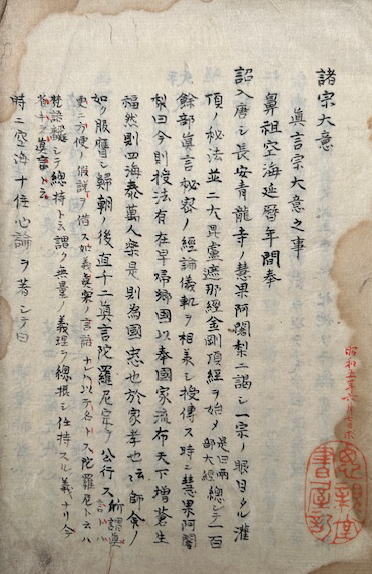 諸宗大意
眞言宗大意之事
鼻祖空海延暦年間奉
詔入唐シ長安青龍寺ノ慧果阿闍梨ニ謁シ一宗ノ眼目タル灌
頂ノ秘法並ニ大毘盧遮那經金剛頂經ヲ始メ是曰兩部大經總シテ一百
餘部眞言秘密ノ經論儀軌ヲ相美シ授傳ス時ニ慧果阿闍
梨曰今則授法有在早歸郷國以奉國家流布天下增蒼生
福然則四海泰萬人樂是則為國忠也於家孝也云云師命ノ
如ク服膺シ歸朝ノ後直ニ眞言陀羅尼宗ヲ公行ス所謂眞言トハ
ヲ借ス如義眞實ノ言語ナレハ以テ名トス陀羅尼トハ
梵語飜シテ總持ト云謂ク無量ノ義理ヲ總攝シ任持スル義ナリ今
眞言ト云
時ニ空海十住心論ヲ著シテ曰
昭和五